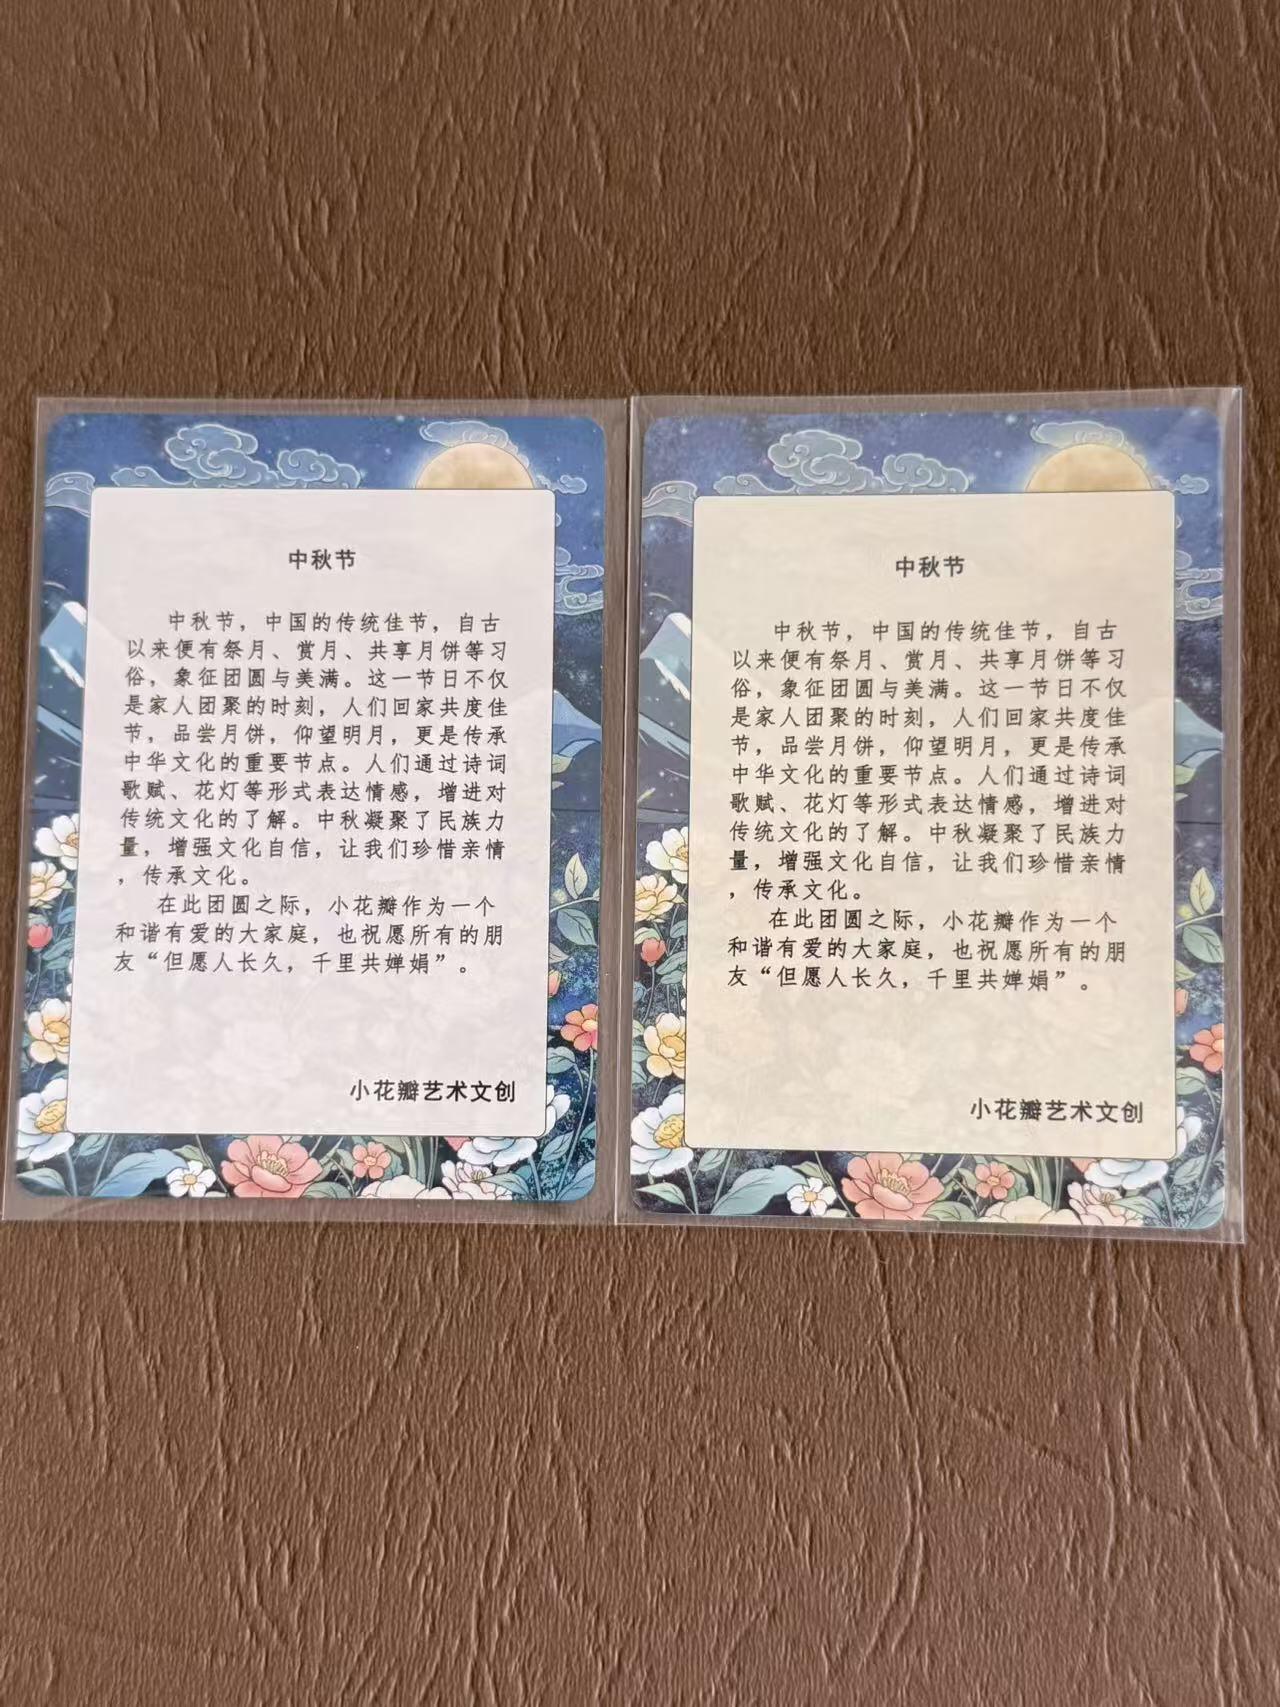 中秋节
中秋节，中国的传统佳节，自古
以来便有祭月、赏月、共享月饼等习
俗，象征团圆与美满。这一节日不仅
是家人团聚的时刻，人们回家共度佳
节，品尝月饼，仰望明月，更是传承
中华文化的重要节点。人们通过诗词
歌赋、花灯等形式表达情感，增进对
传统文化的了解。中秋凝聚了民族力
量，增强文化自信，让我们珍惜亲情
，传承文化。
在此团圆之际，小花瓣作为一个
和谐有爱的大家庭，也祝愿所有的朋
友“但愿人长久，千里共婵娟”。
小花瓣艺术文创
中秋节
中秋节，中国的传统佳节，自古
以来便有祭月、赏月、共享月饼等习
俗，象征团圆与美满。这一节日不仅
是家人团聚的时刻，人们回家共度佳
节，品尝月饼，仰望明月，更是传承
中华文化的重要节点。人们通过诗词
歌赋、花灯等形式表达情感，增进对
传统文化的了解。中秋凝聚了民族力
量，增强文化自信，让我们珍惜亲情
，传承文化。
在此团圆之际，小花瓣作为一个
和谐有爱的大家庭，也祝愿所有的朋
友“但愿人长久，千里共婵娟”。
小花瓣艺术文创